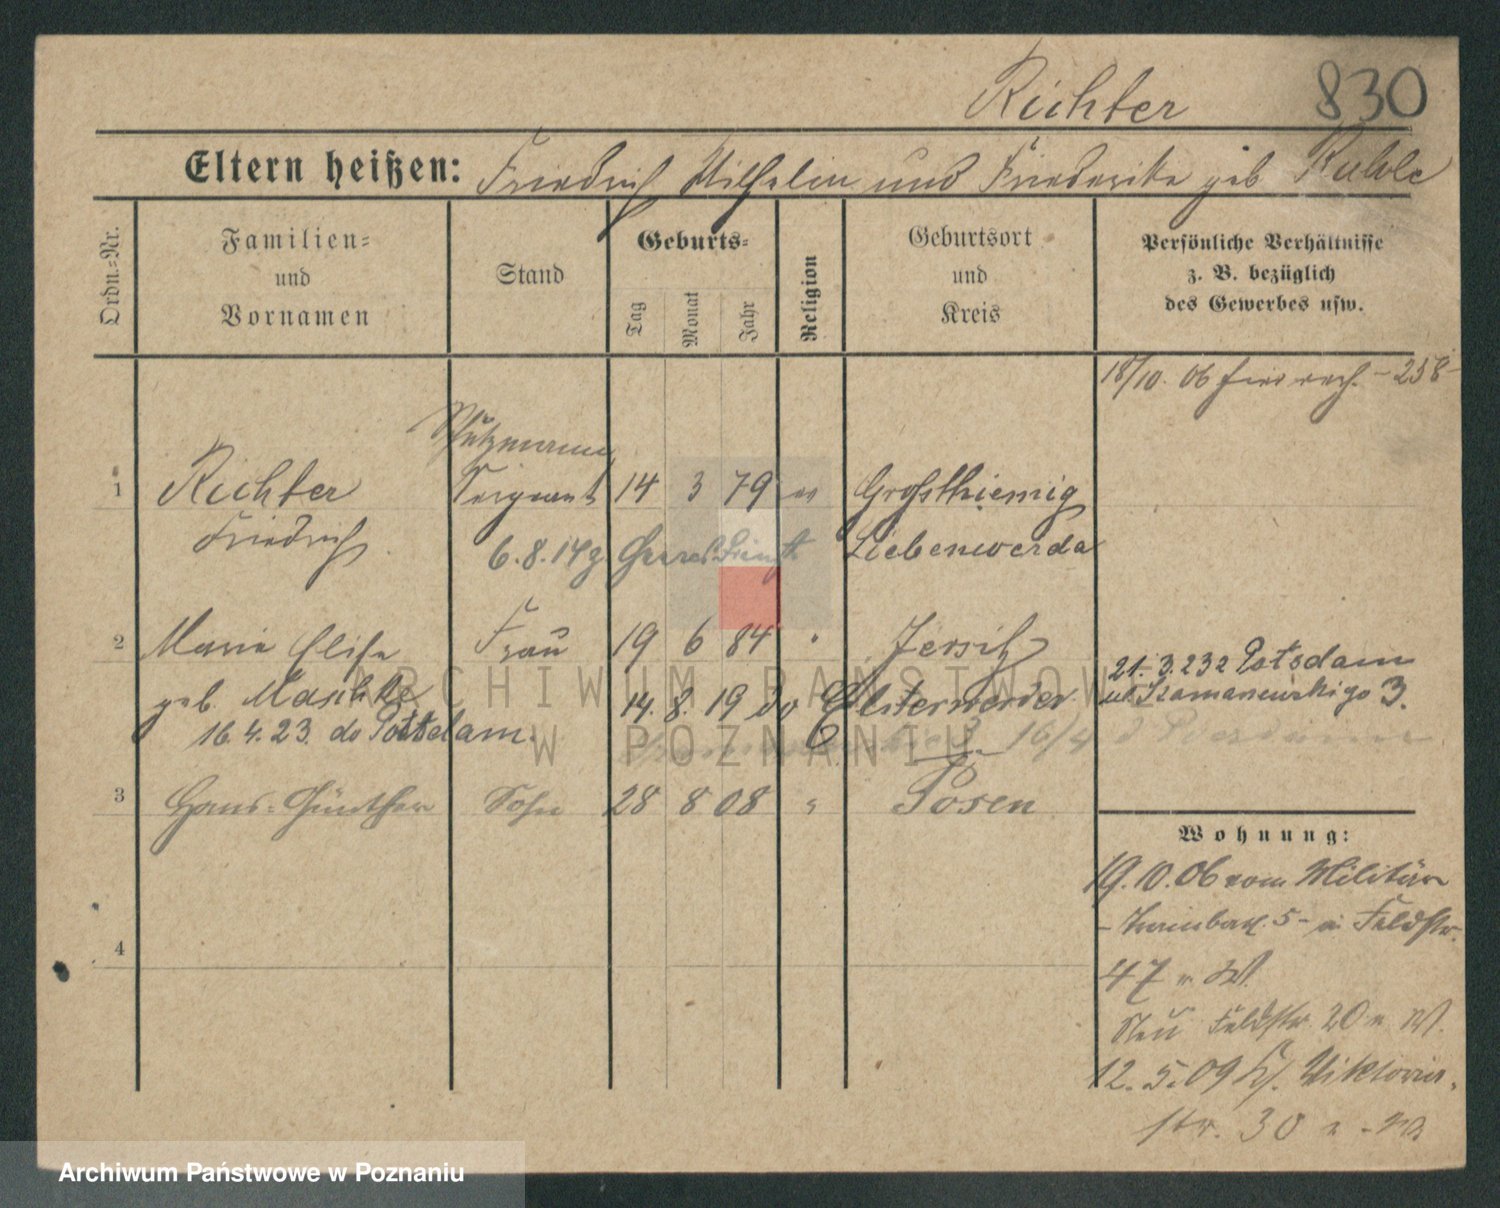 Richter 830
Eltern heißen: Friedrich Wilhelm und Friederike geb
Ordn.-Nr.
Familien-
und
Vornamen
Stand
Geburts-
Tag
Monat
Jahr
Religion
Geburtsort
und
Kreis
Persönliche Verhältnisse
z. B. bezüglich
des Gewerbes usw.
18/10. 06 -258-
Schutzmann
1 Richter Sergeant 14 3 79 ev Grosthiemig
Friedrich 6.8.14 Liebenwerda
2 Marie Elise Frau 19 6 84 " Jersitz
geb. Maschke 14. 8. 19 do
21.3.232 Potsdam
3.
16.4.23. do Potsdam.
16/4
3 Hans-Günther Sohn 28 8 08 " Posen
4
Wohnung:
19.10.06 vom Militär
5- a. Feldstr.
47 W.
Neu Feldstr. 20 W.
12.5.09 Viktoria-
str. 30
ARCHIWUM PAŃSTWOWE
W POZNANIU
Archiwum Państwowe w Poznaniu